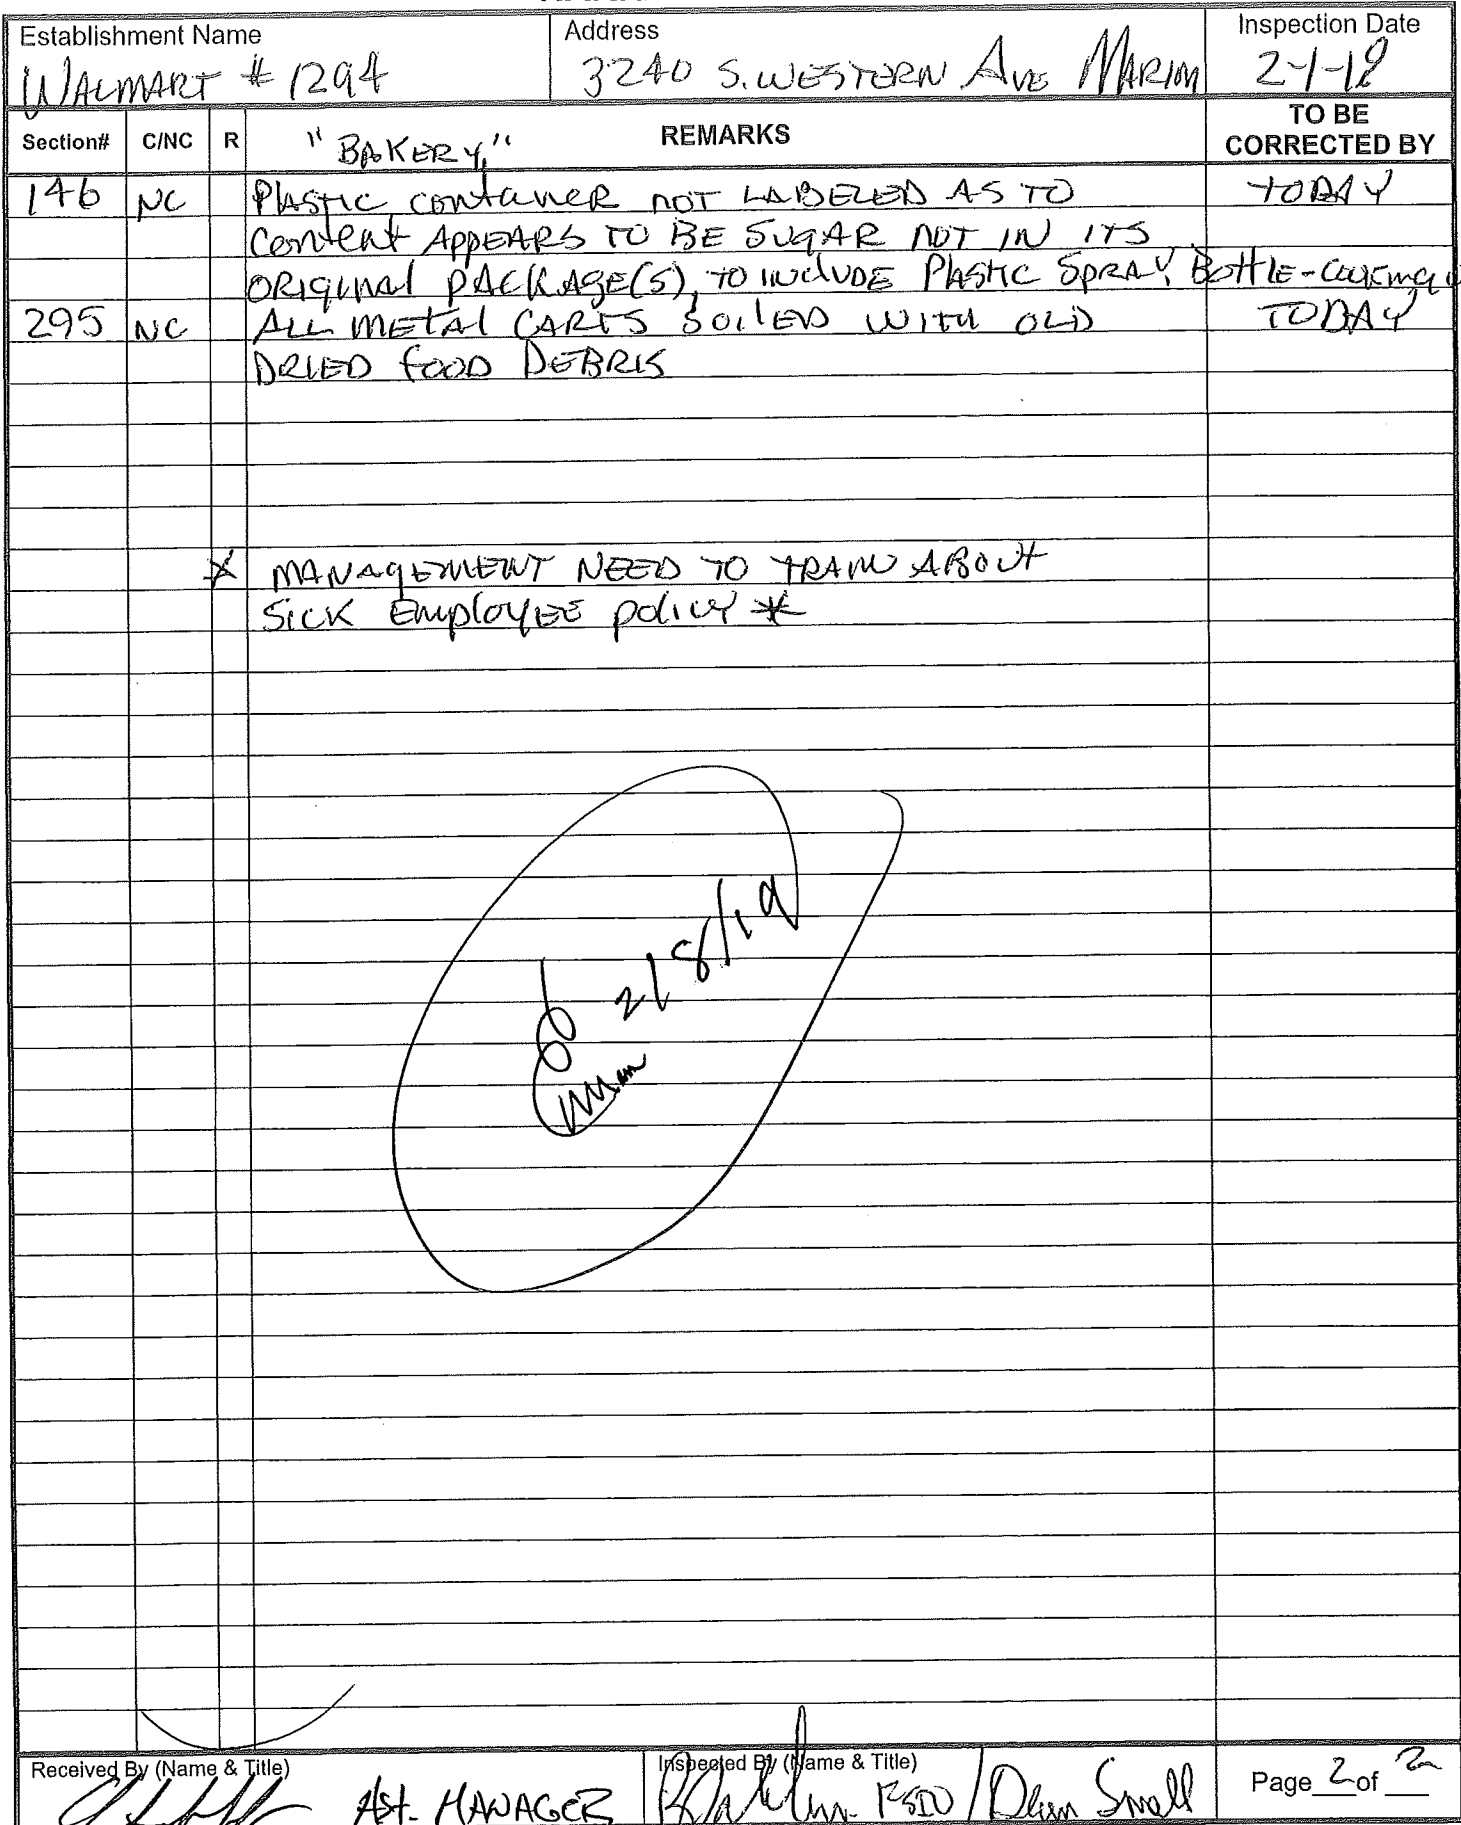 Establishment Name
WALMART # 1294
Address
3240 S. WESTERN AVE MARION
Inspection Date
Section# C/NC R "BAKERY" REMARKS TO BE CORRECTED BY
146 NC PLASTIC CONTAINER NOT LABELED AS TO TODAY
CONTENT APPEARS TO BE SUGAR NOT IN ITS
ORIGINAL PACKAGE(S), TO INCLUDE PLASTIC SPRAY BOTTLE-
295 NC ALL METAL CARTS SOILED WITH OLD TODAY
DRIED FOOD DEBRIS
* MANAGEMENT NEED TO TRAIN ABOUT
SICK EMPLOYEE POLICY *
2/8/19
Received By (Name & Title)
Ast. MANAGER
Inspected By (Name & Title)
/ Small
Page 2 of